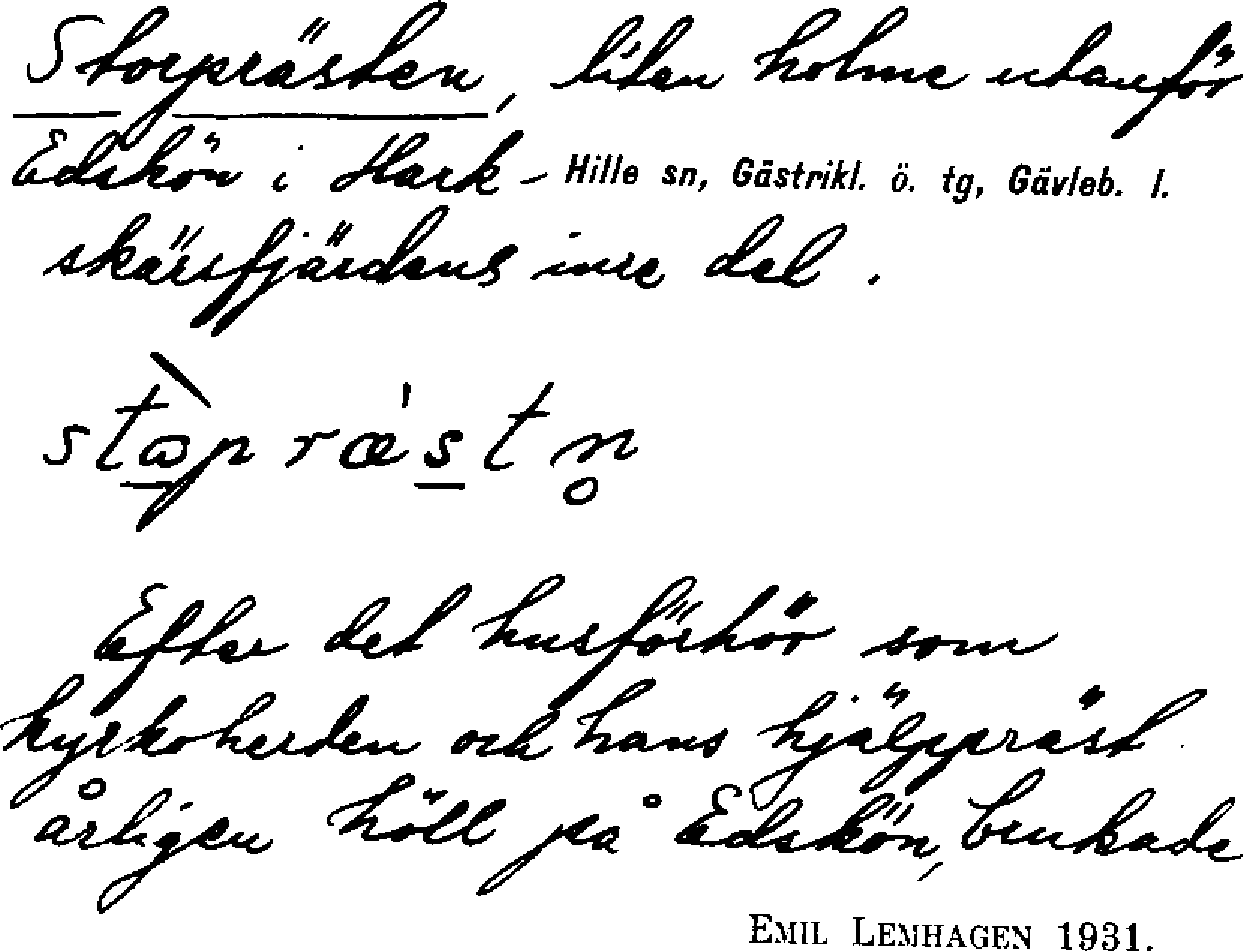 Storprästen, liten holme utanför
Edskön i Hark- Hille sn, Gästrikl. ö. tg, Gävleb. l.
skärsfjärdens inre del.
Efter det husförhör som
kyrkoherden och hans hjälppräst
årligen höll på Edskön, brukade
EMIL LEMHAGEN 1931.